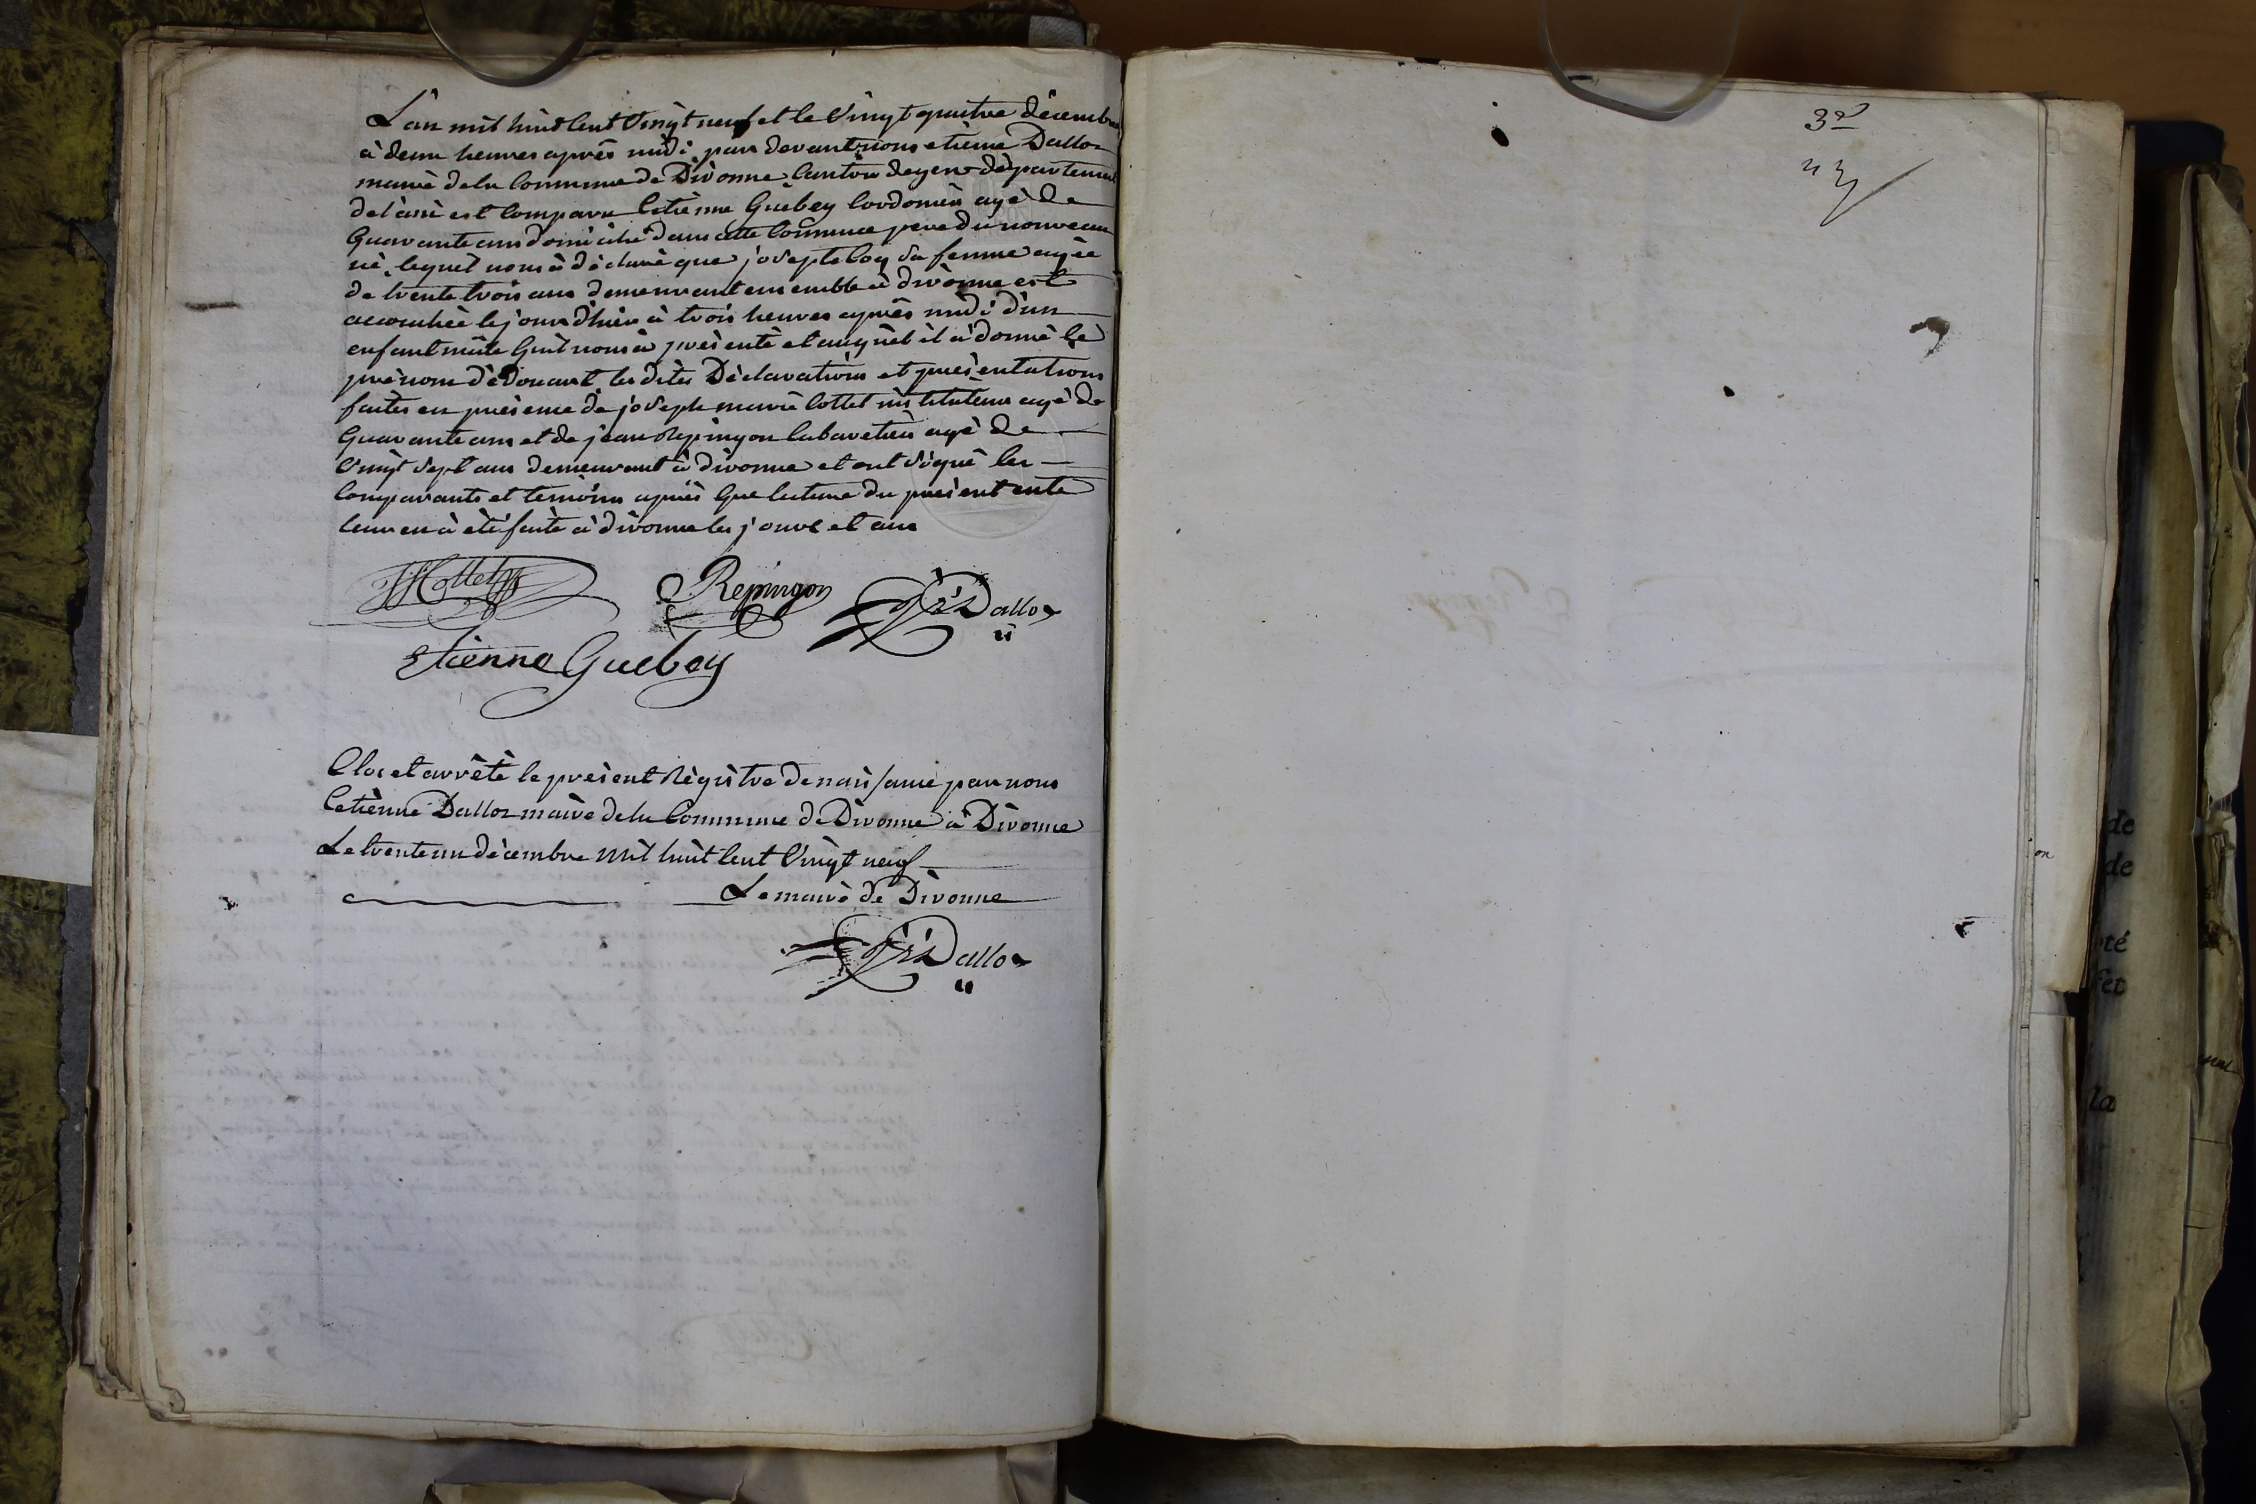 L'an mil huit cent vingt neuf et le vingt quatre décembre
à deux heures après midi, par devant nous etiènne Dalloz
mairè de la Commune de Divonne, Canton de gex département
de l'ain est comparu Cetiènne Guebey Cordonièr agè de
Quarante ans domicilié dans cette Commune pere du nouveau
nè, lequel nous à dèclarè que josepte Coy sa femme agèe
de trente trois ans demeurant ensemble à divonne est
accouchèe le jour d'hièr à trois heures après midi d'un
enfant mâle Quil nous à prèsentè et auquèl il à donnè le
prènom d'èdouard les dites Dèclarations et prèsentations
faites en prèsence de joseph marie Cottet institùteur agè de
Quarante ans et de jean Repingon Cabaretièr agè de
Vingt sept ans demeurant à divonne et ont signè les
Comparants et temoins après que lecture du prèsent acte
leur en à ètè faite à divonne les jour et an
JMCottet
Repingon
Dalloz
Etienne Guebey
Clos et arrètè le prèsent Règistre de naissance par nous
Cetiènne Dalloz maire de la Commune de Divonne à Divonne
Le trente un dècembre mil huit cent Vingt neuf
Le mairè de Divonne
Dalloz
3e
de
de
on
té
fet
la